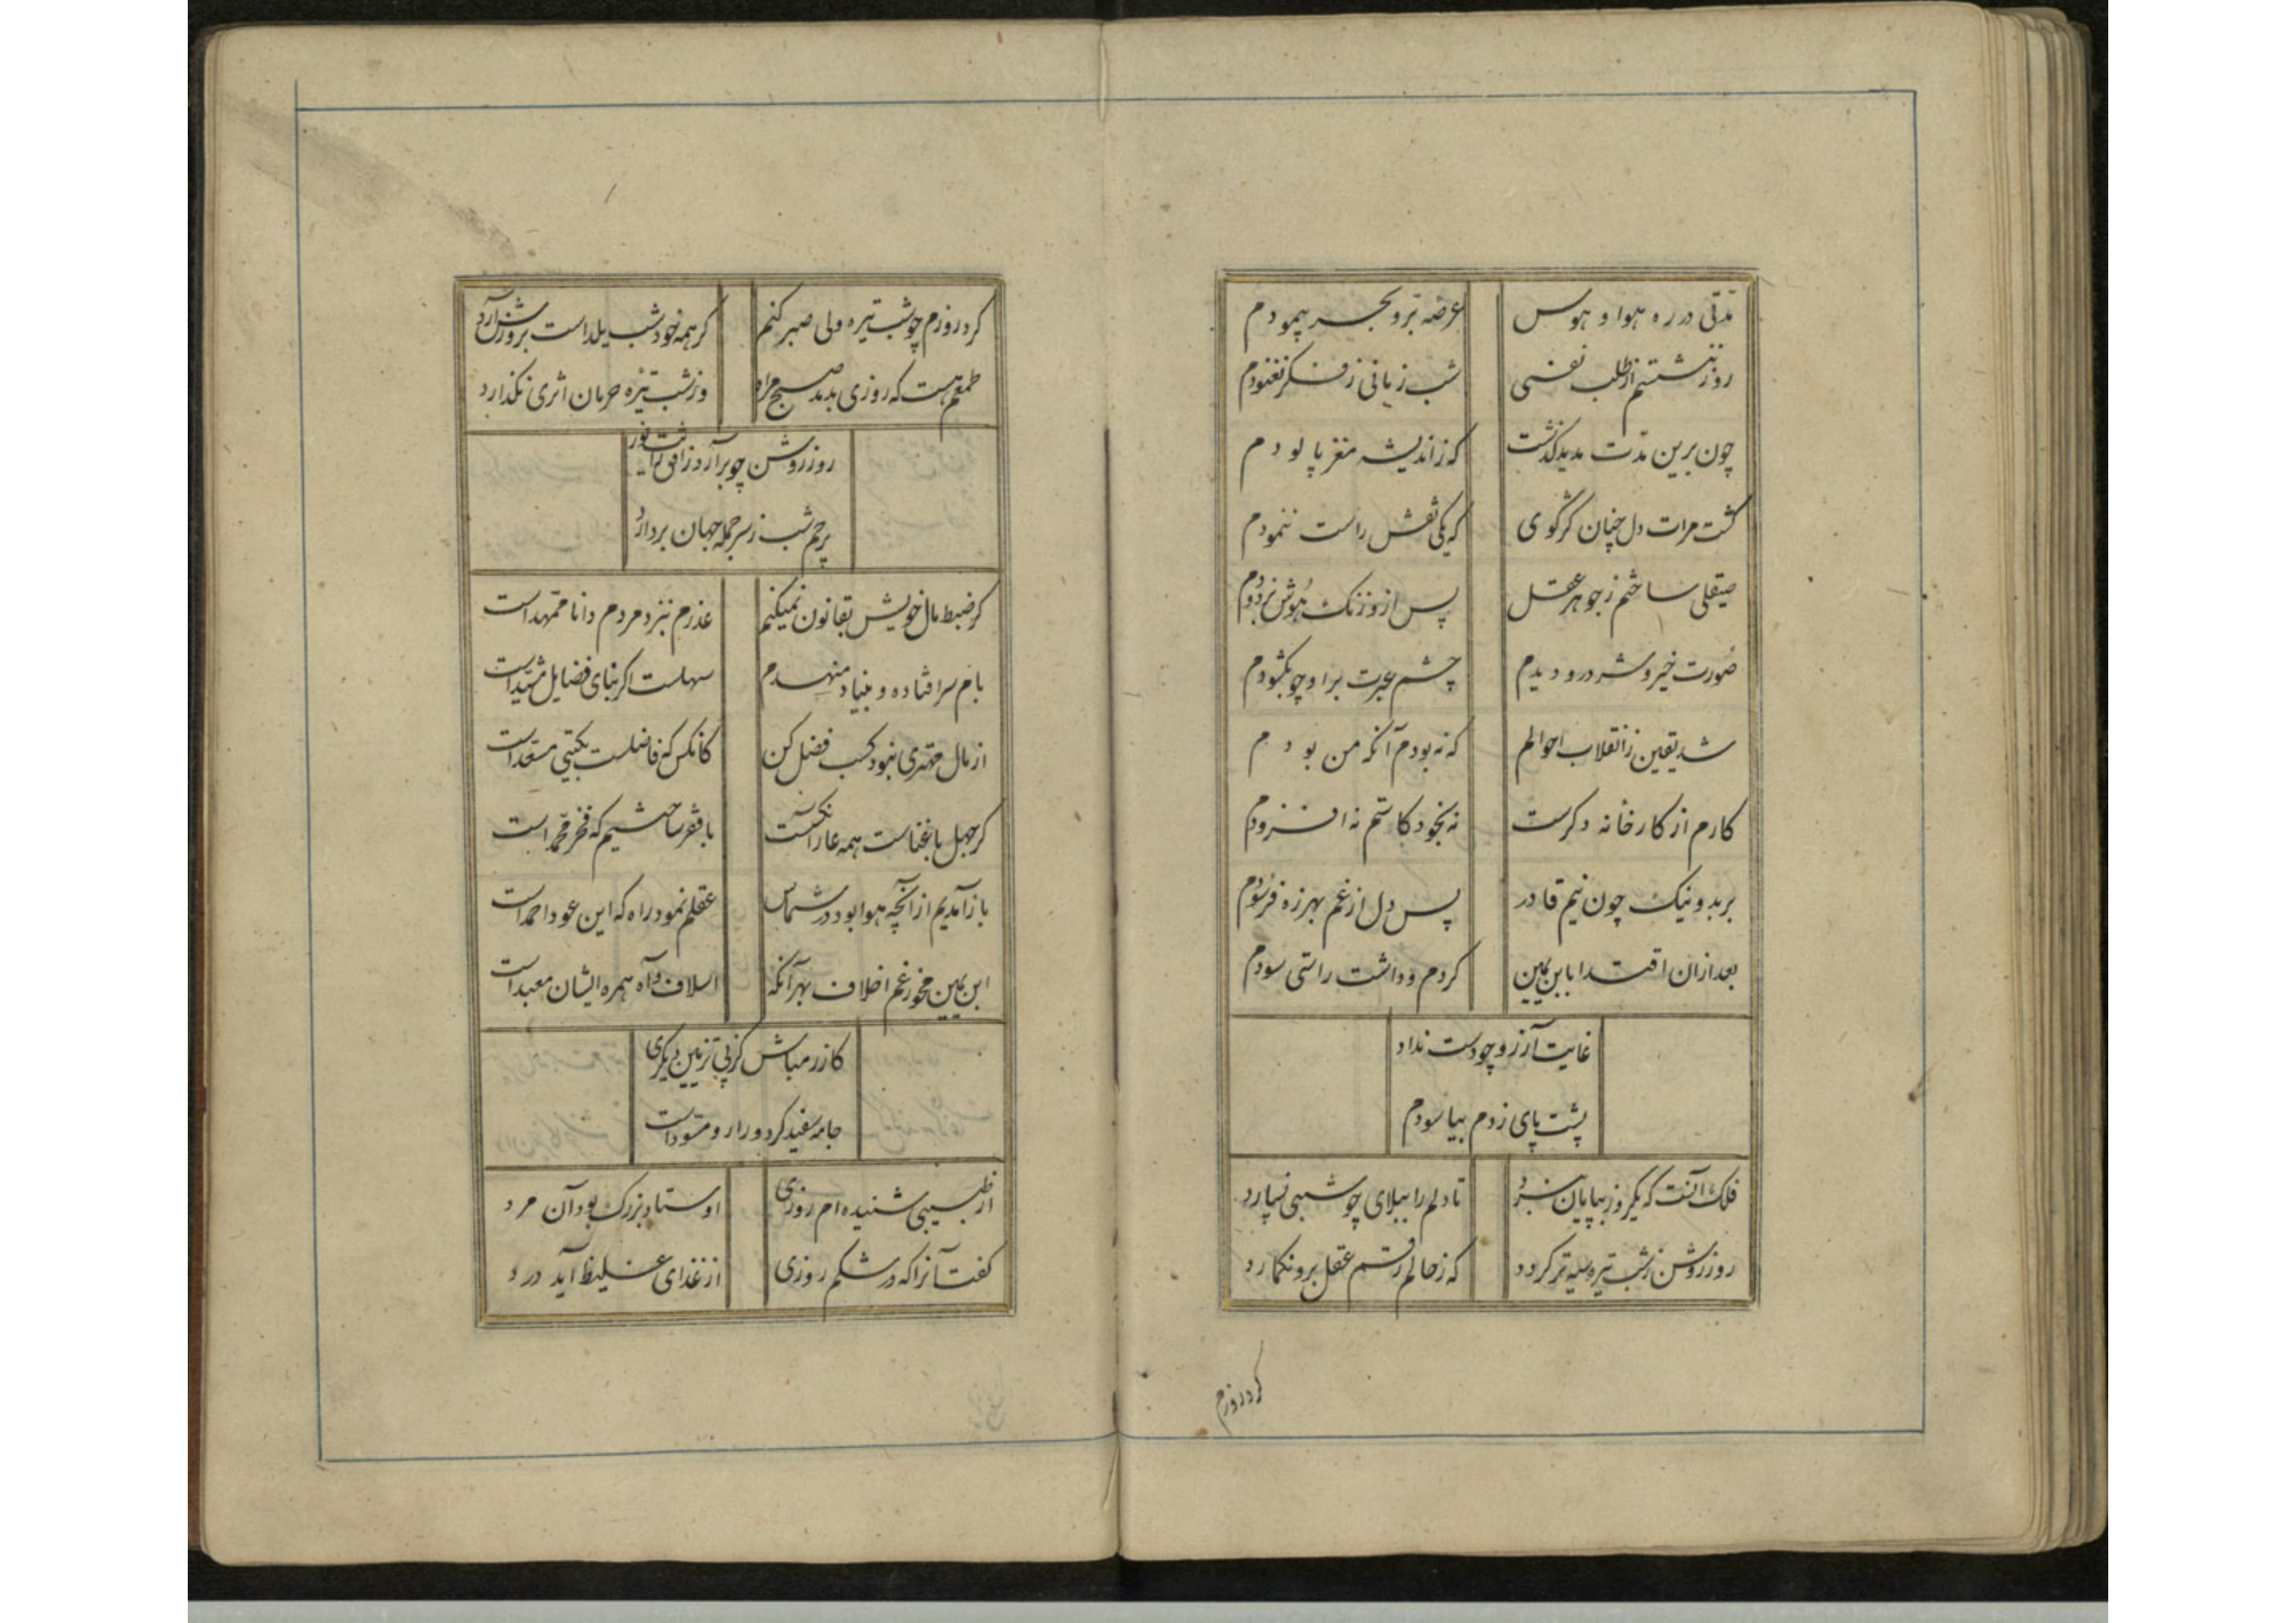 مدتی در ره هوا و هوس عرضه بر و بحر پیمودم
روز ننشستم از طلب نفسی شب زمانی ز فکر نغنودم
چون برین مدت مدید گذشت که ز اندیشه مغز پالودم
گشت مرات دل چنان کز گوی که یکی نقش راست ننمودم
صیقلی ساختم ز جوهر عقل پس ازو زنک هوش بزدودم
صورت خیر و شر درو دیدم چشم عبرت برا و چو بکشودم
شد یقین ز انقلاب احوالم که نه بودم آنکه من بودم
کارم از کارخانه دکرست نه بخود کاستم نه افزودم
بر بد و نیک چون نیم قادر پس دل از غم بهرزه فرسودم
بعد ازان اقتدا بابن یمین کردم و داشت راستی سودم
غایت آرزو چو دست نداد
پشت پای زدم بیاسودم
فلک آنست که یکروز بپایان نبرد تا دلم را ببلای چو شبی نسپارد
روز روشن ز شب تیره سیه تر کردد که ز حالم رقم عقل برو نکمارد
کرد روزم
کرد روزم چو شب تیره ولی صبر کنم کر همه خود شب یلداست بروزش آرد
طمعم هست که روزی بدمد صبح مراد وز شب تیره حرمان اثری نکذارد
روز روشن چو برآرد ز افق رایت نور
پرچم شب ز سر جمله جهان بردارد
کر ضبط مال خویش بقانون نمیکنم عذرم بنزد مردم دانا ممهد است
بام سرا فتاده و بنیاد منهدم سهلست اکر بنای فضایل مشید است
از مال مهتری نبود کسب فضل کن کانکس که فاضلست بکیتی مستعد است
کر جهل با غناست همه عار آنکست با فقر ساختیم که فخر محمد است
باز آمدیم از آنچه هوا بود در شماس عقلم نمود راه که این عود احمد است
ابن یمین مخور غم اخلاف بهر آنکه اسلاف و آه همره ایشان معبد است
کازر مباش کز پی تزیین دیکری
جامه سفید کرد و را رو مسود است
از طبیبی شنیده ام روزی اوستاد بزرک بود آن مرد
کفت آنرا که در شکم روزی از غذای غلیظ آید درد